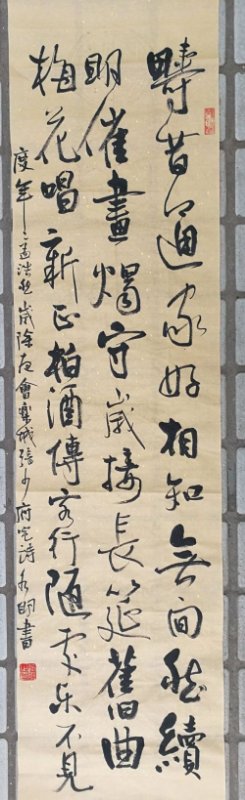 疇昔通家好相知無間然續
明催畫燭守歲接長筵舊曲
梅花唱新正柏酒傳客行随處乐不見
度年々孟浩然歲除夜會樂城張少府宅詩明書